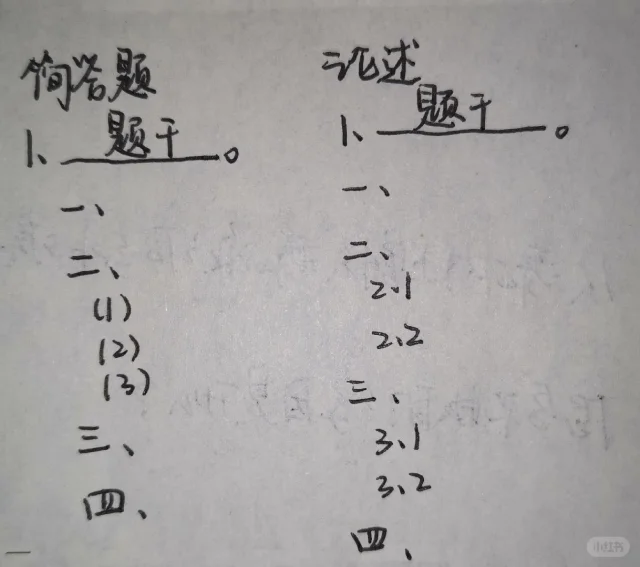 简答题
1、题干。
一、
二、
(1)
(2)
(3)
三、
四、
论述
1、题干。
一、
二、
2、1
2、2
三、
3、1
3、2
四、
小红书